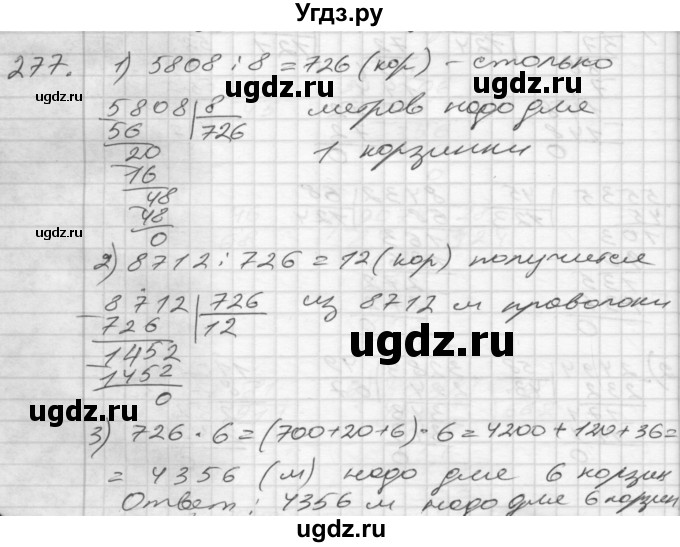 Угдз.ру
277. 1) 5808 : 8 = 726 (кор) - столько
ugdz.ru ugdz.ru
5808 | 8 метров надо для
56 726
20 1 корзинки
16
48
48
0
ugdz.ru ugdz.ru
2) 8712 : 726 = 12 (кор) получится
8712 | 726 из 8712 м проволоки
726 12
1452
1452
0
ugdz.ru ugdz.ru
3) 726 · 6 = (700+20+6) · 6 = 4200 + 120 + 36 =
= 4356 (м) надо для 6 корзин
ugdz.ru ugdz.ru
Ответ: 4356 м надо для 6 корзин
ugdz.ru